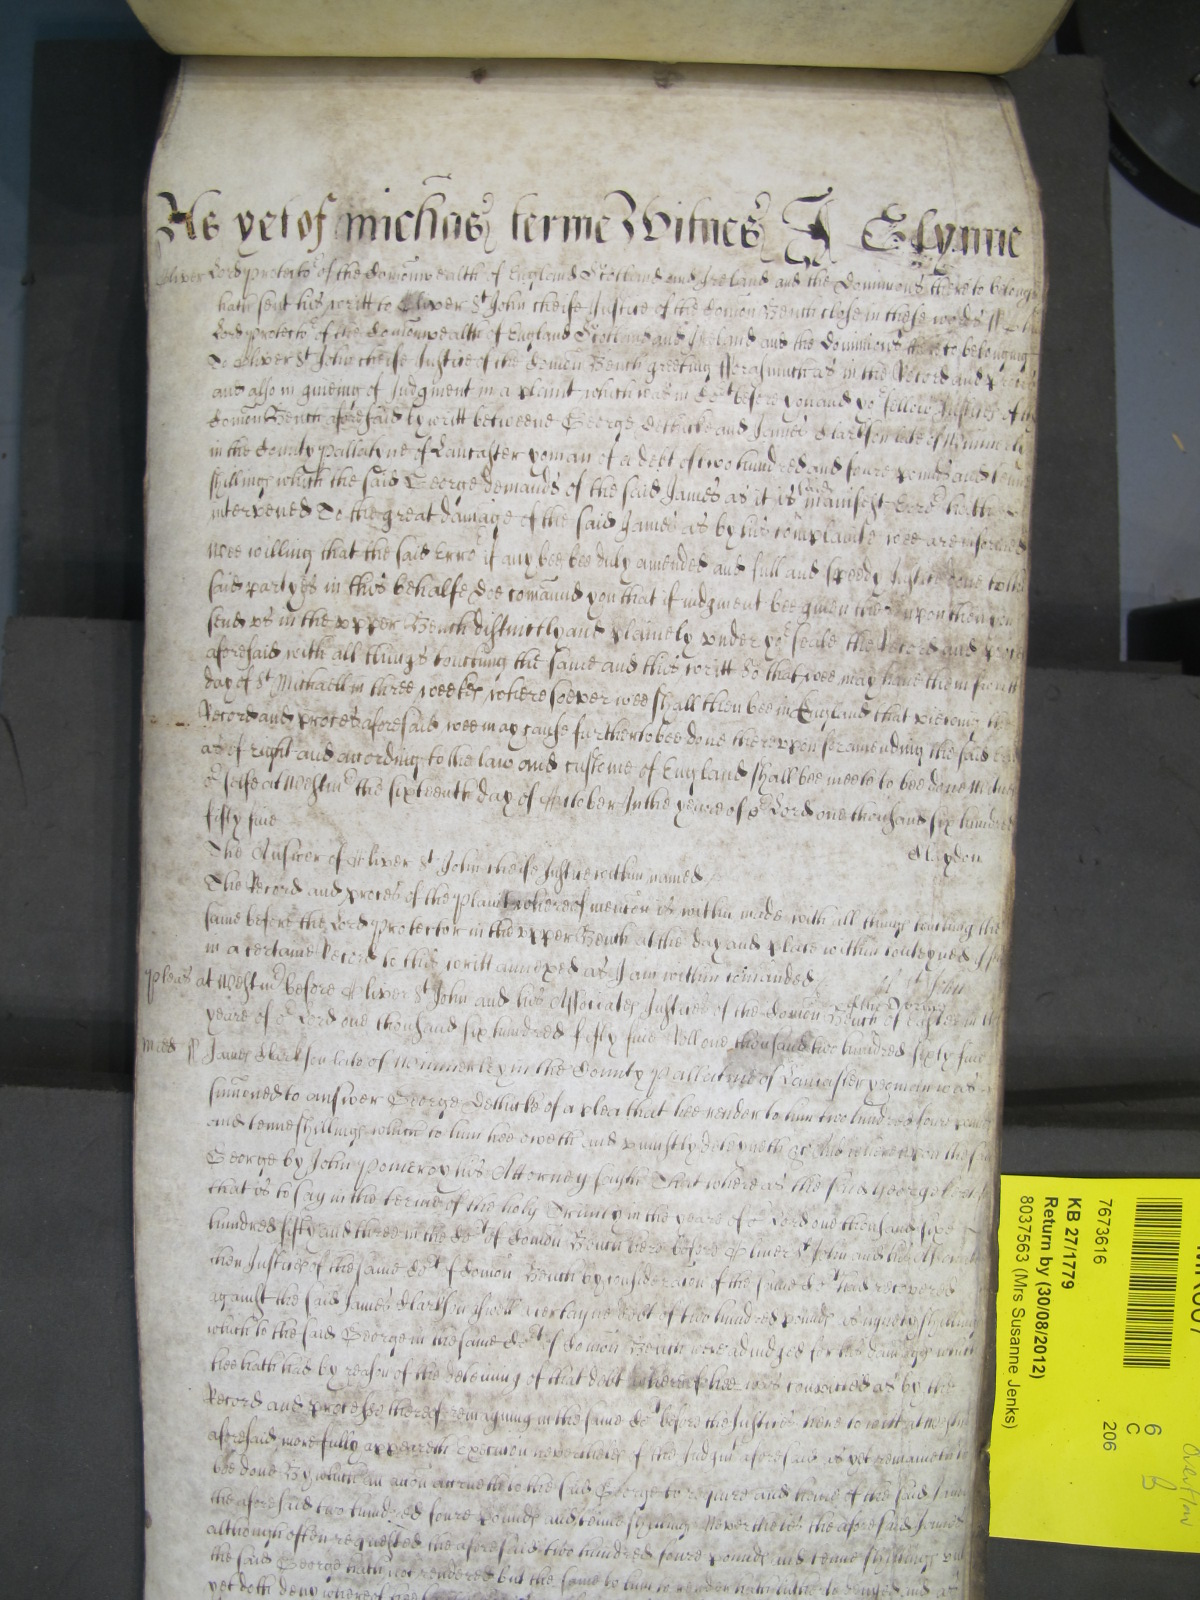 As yet of Michas terme Witnes J Glynne
Oliver Lord protector of the Comonwealth of England Scotland and Ireland and the Dominions thereto belonging
hath sent his writt to Oliver St John cheife Justice of the Comon Bench close in these words
Lord protector of the Comonwealth of England Scotland and Ireland and the Dominions thereto belonging
To Oliver St John cheife Justice of the Comon Bench greeting Forasmuch as in the Record and proces
and also in giveing of Judgment in a plaint which was in Cort before you and yor fellow Justices of the
Comon Bench aforesaid by writt betweene George and James Clarkson late of
in the County pallatyne of Lancaster yoman of a debt of two hundred and foure pounds and tenne
shillings which the said George demands of the said James as it is said manifest Error hath
intervened To the great damage of the said James as by his complainte wee are informed
Wee willing that the said Error if any bee bee duly amended and full and speedy Justice done to the
said partyes in this behalfe doe comaund you that if Judgment bee given thereupon then you
send us in the upper Bench distinctly and plainely under yor seale the Record and proces
aforesaid with all things touching the same and this writt So that wee may have them from the
day of St Michaell in three weekes wheresoever wee shall then bee in England that viewing the
Record and proces aforesaid wee may cause further to bee done thereupon for amending the said
as of right and according to the law and custome of England shall bee meete to bee done Witnes
at Westmr the sixteenth day of October In the yeare of or Lord one thousand six hundred
fifty five
Claydon
The Answer of Oliver St John cheife Justice within named
The Record and proces of the plaint whereof mention is within made with all things touching the
same before the Lord Protector in the upper Bench at the day and place within conteyned I send
in a certaine Record to this writt annexed as I am within comanded
Pleas at Westmr before Oliver St John and his Associates Justices of the Comon Bench of Easter in the
yeare of or Lord one thousand six hundred fifty five Roll one thousand two hundred sixty five
James Clarkson late of in the County Pallatine of Lancaster yeoman was
sumoned to answer George of a plea that hee render to him two hundred foure pounds
and tenne shillings which to him hee oweth and uniustly deteyneth &c And whereupon the said
George by John Pomeroy his Attorney saith That whereas the said George
that is to say in the terme of the holy Trinity in the yeare of or Lord one thousand six
hundred fifty and three in the Cort of Comon Bench here before Oliver St John and his Associates
then Justices of the same Cort of Comon Bench by consideracon of the same Cort had recovered
against the said James Clarkson aswell a certayne debt of two hundred pounds as ninety shillings
which to the said George in the same Cort of Comon Bench were adiudged for his damages which
hee hath had by reason of the deteining of that debt whereof hee was convicted as by the
Record and Processe thereof remayning in the same Cort before the Justices here to wit at Westmr
aforesaid more fully appeareth Execucon nevertheles of the Judgmt aforesaid as yet remaineth to
bee done By which an accon accrueth to the said George to require and have of the said James
the aforesaid two hundred foure pounds and tenne shillings Neverthelesse the aforesaid James
although often requested the aforesaid two hundred foure pounds and tenne shillings unto
the said George hath not rendered but the same to him to render hath hitherto denyed and as
yet doth deny whereof hee
7673616
KB 27/1779
Return by (30/08/2012)
8037563 (Mrs Susanne Jenks)
6
C
206